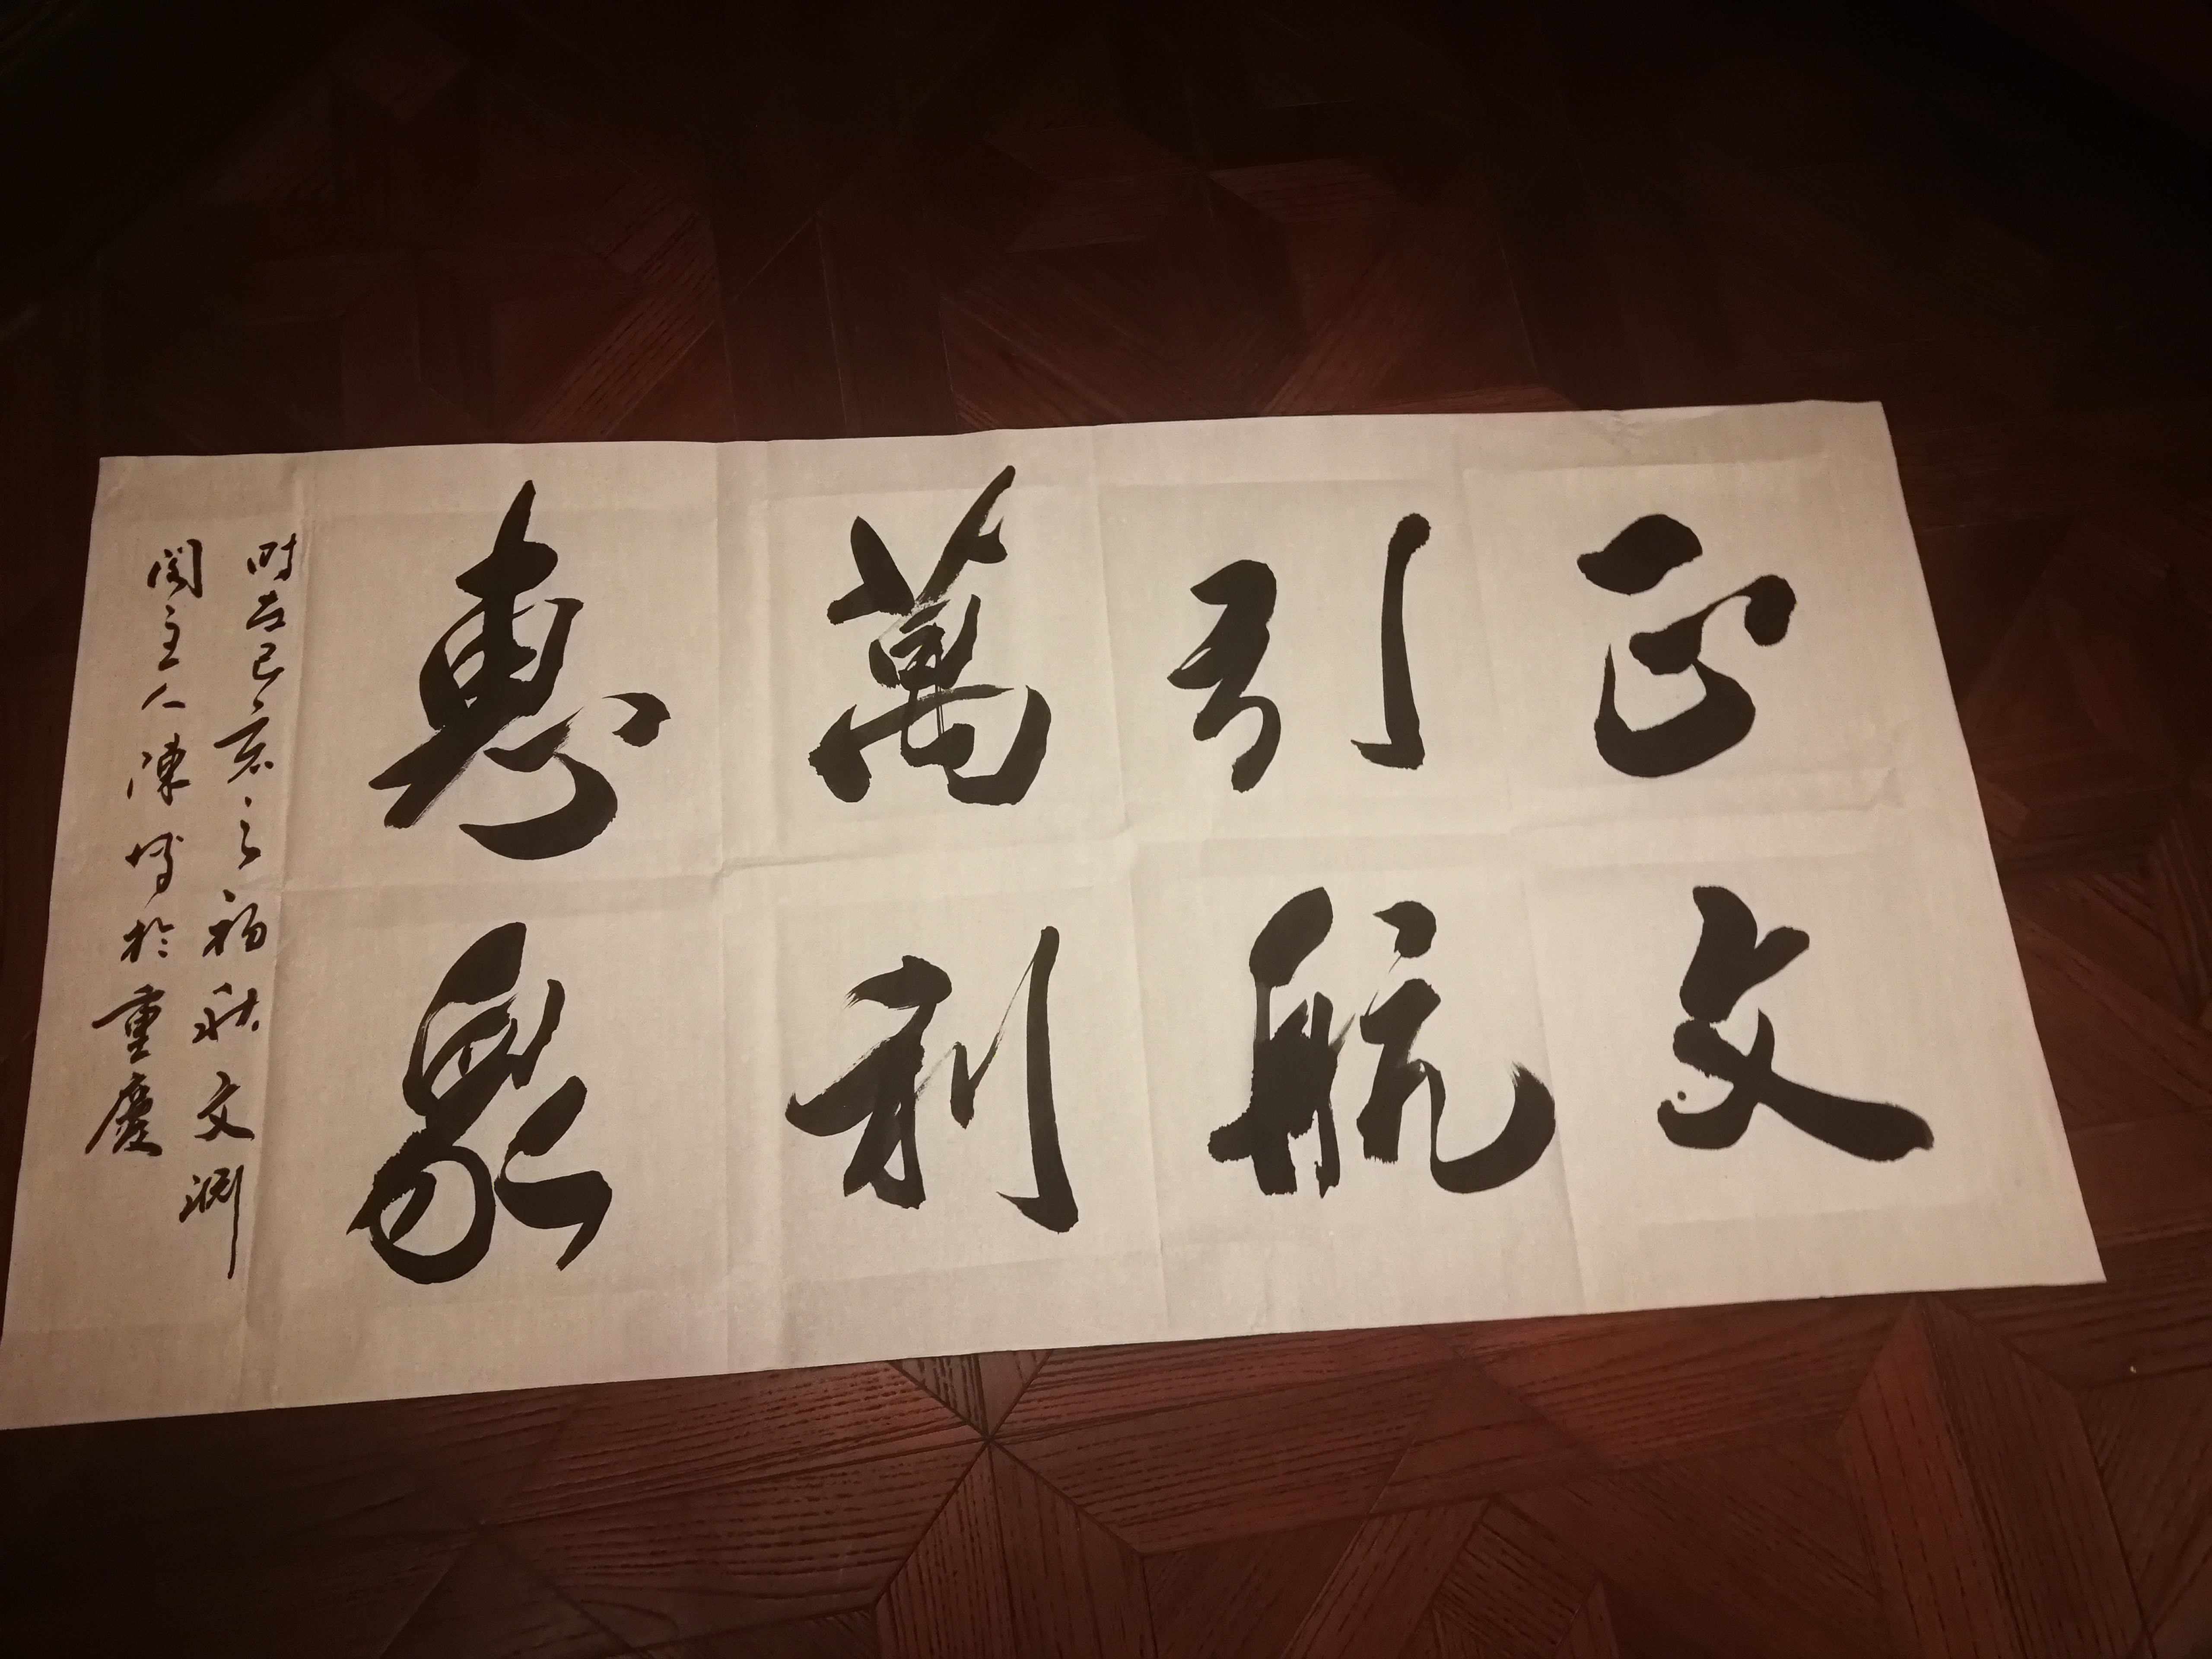 正文
引航
萬利
惠眾
時在己亥之初秋文淵
閣主人陳博於重慶